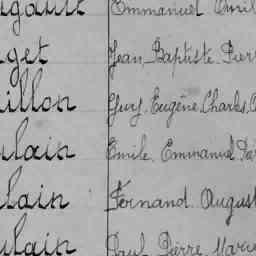 Emmanuel
get Jean Baptiste Pierr
illon Guy Eugène Charles
lain Emile Emmanuel
lain Fernand August
ulain Paul Pierre Marie